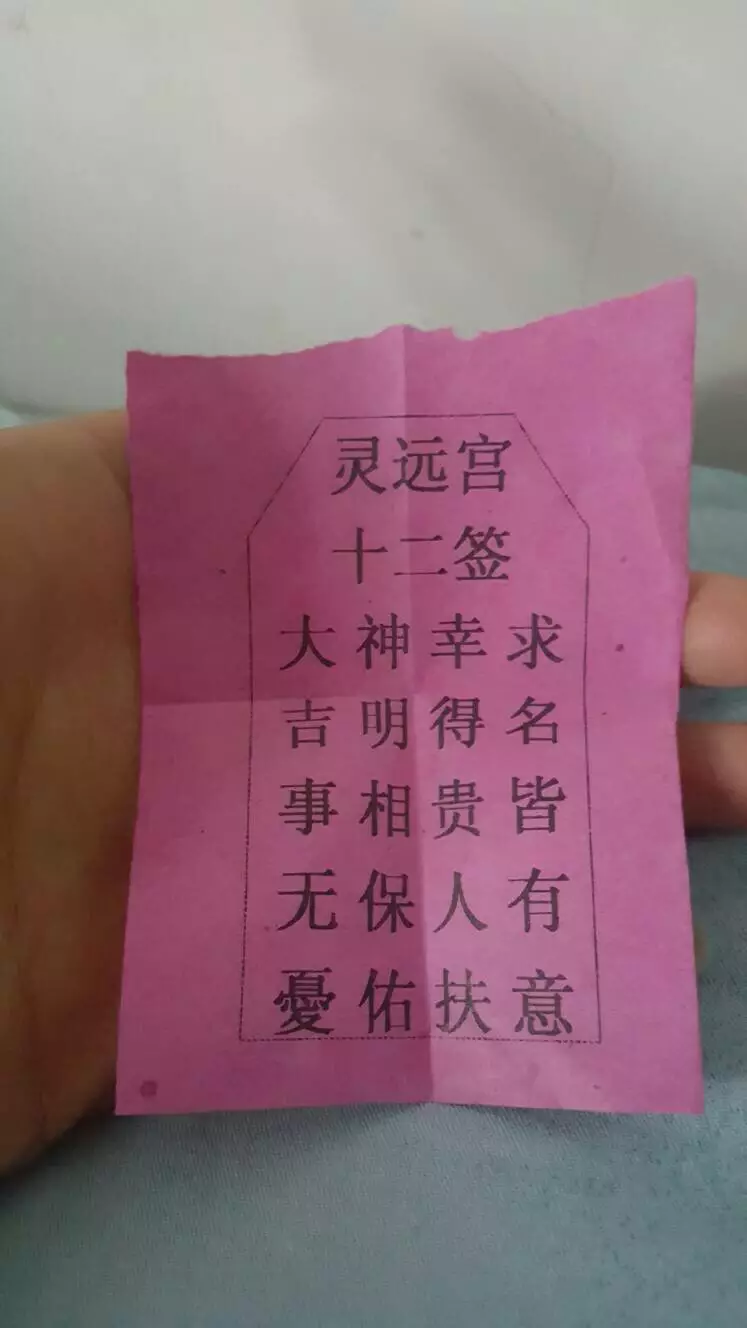 灵远宫
十二签
求名皆有意
幸得贵人扶
神明相保佑
大吉事无憂